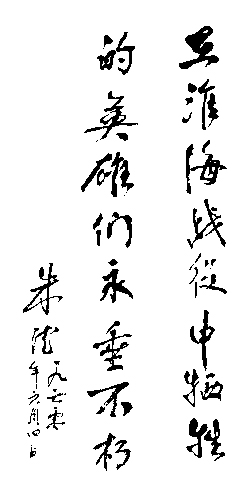 在淮海战役中牺牲
的英雄们永垂不朽
朱德
一九七零
年六月四日